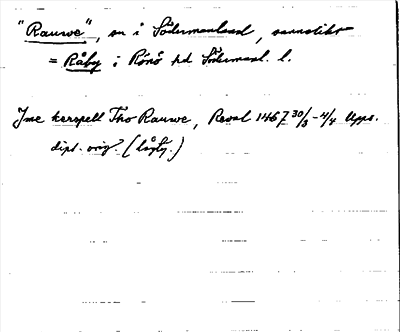 "Rauwe", sn i Södermanland, sannolikt
= Råby i Rönö hd Södermanl. l.
Jme kerspell Tho Rauwe, Reval 1467 30/3 - 4/4 Upps.
dipl. orig. (lågty.)